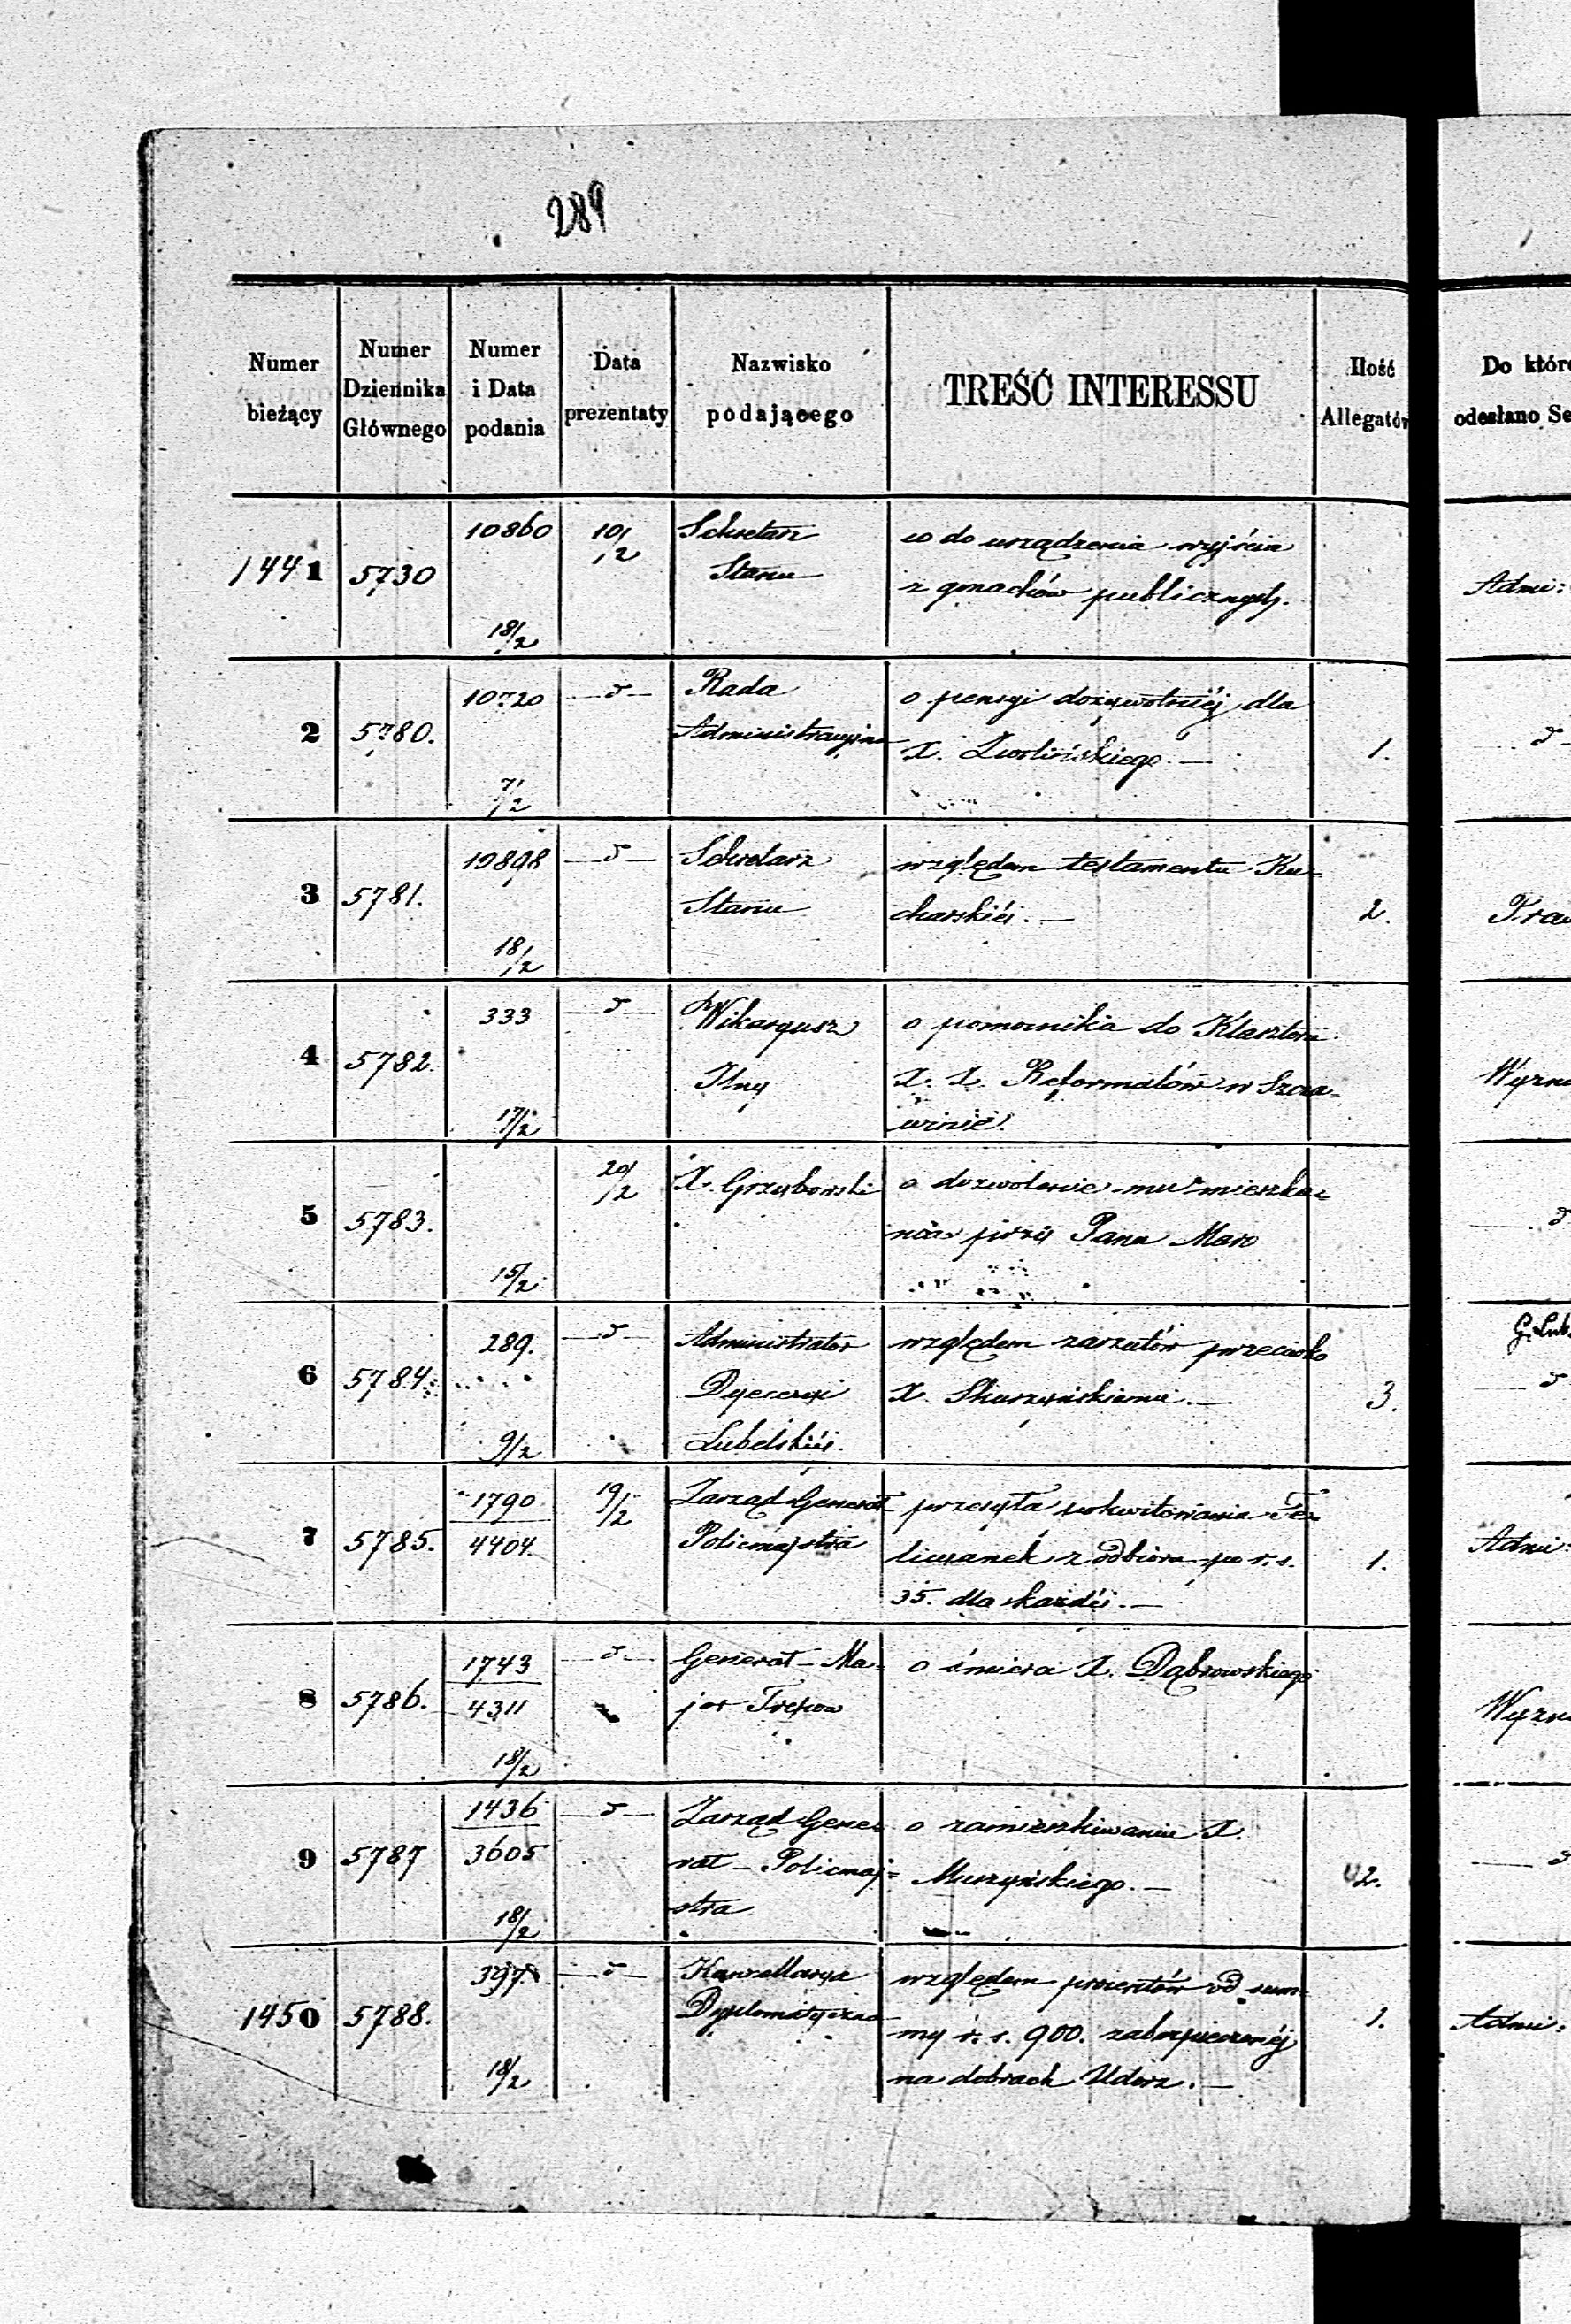 289
Numer bieżący
Numer Dziennika Głównego
Numer i Data podania
Data prezentaty
Nazwisko podającego
TREŚĆ INTERESSU
Ilość Allegatów
Do które
odesłano Se
1441 5730 10860 18/2 10/12 Sekretarz Stanu
co do urządzenia wyjścia
z gmachów publicznych.
Admi:
2 5780. 10720 7/2 —d— Rada Administracyjna
o pensyi dożywotniéj dla
X. Zwolińskiego. —
1.
3 5781. 10898 18/2 —d— Sekretarz Stanu
względem testamentu Ku-
charskiéj. —
2.
4 5782. 333 17/2 —d— Wikaryusz
o pomocnika do Klasztoru
X. X. Reformatów w Szcza-
winie.
Wyzn
5 5783. 15/2 20/2 X. Grzybowski
o dozwolenie mu mieszka-
nia przy Panu
6 5784. 289. 9/2 —d— Administrator Dyecezyi Lubelskiéj.
względem zarzutów przeciwko
X. Skurzyńskiemu. —
3.
G. Lub.
7 5785. 1790 4404. 19/2 Zarząd Generał Policmajstra
przesyła pokwitowania Fe-
licyanek z odbioru po r. s.
35. dla każdéj. —
1.
Admi:
8 5786. 1743 4311 18/2 —d— Generał-Ma-
jor Trepow
o śmierci X. Dąbrowskiego
Wyzn
9 5787 1436 3605 18/2 —d— Zarząd Gene-
rał-Policmaj-
stra
o zamieszkiwaniu X.
Muszyńskiego. —
2.
1450 5788. 397 18/2 —d— Kancellarya Dyplomatyczna
względem procentów od sum-
my r. s. 900. zabezpieczonéj
na dobrach Udorz. —
1.
Admi: